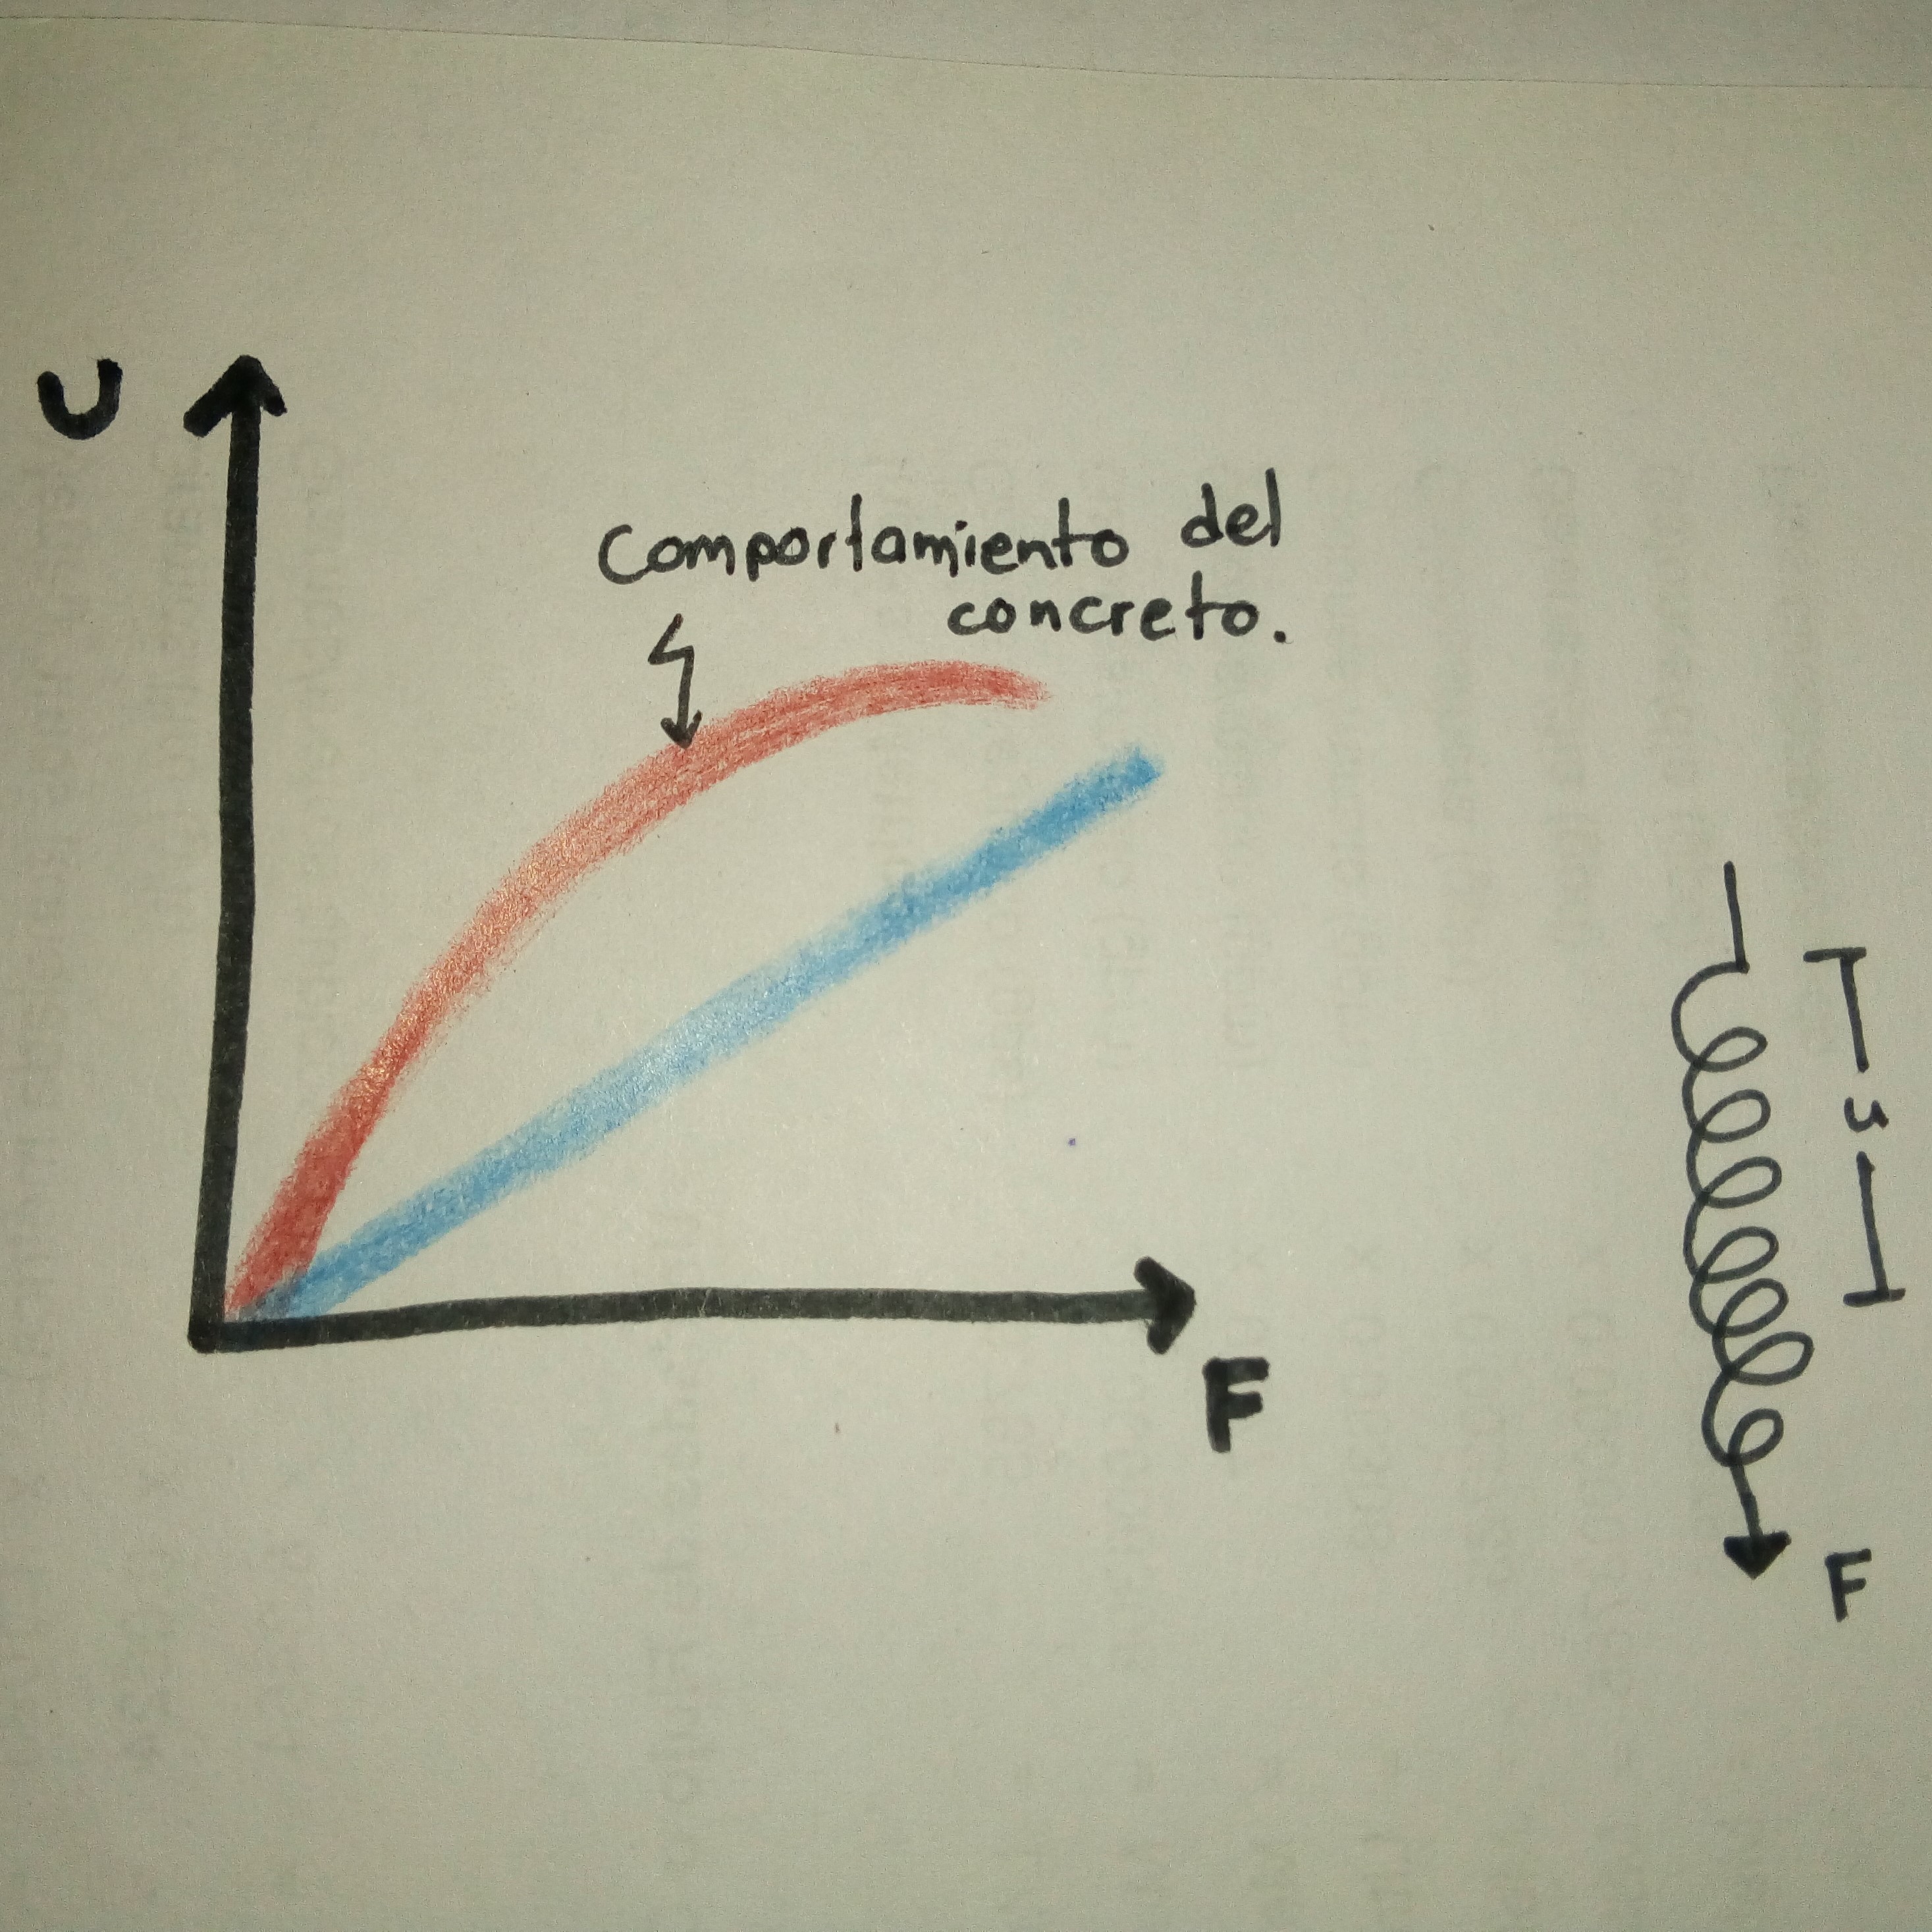 U
Comportamiento del
concreto.
F
u
F